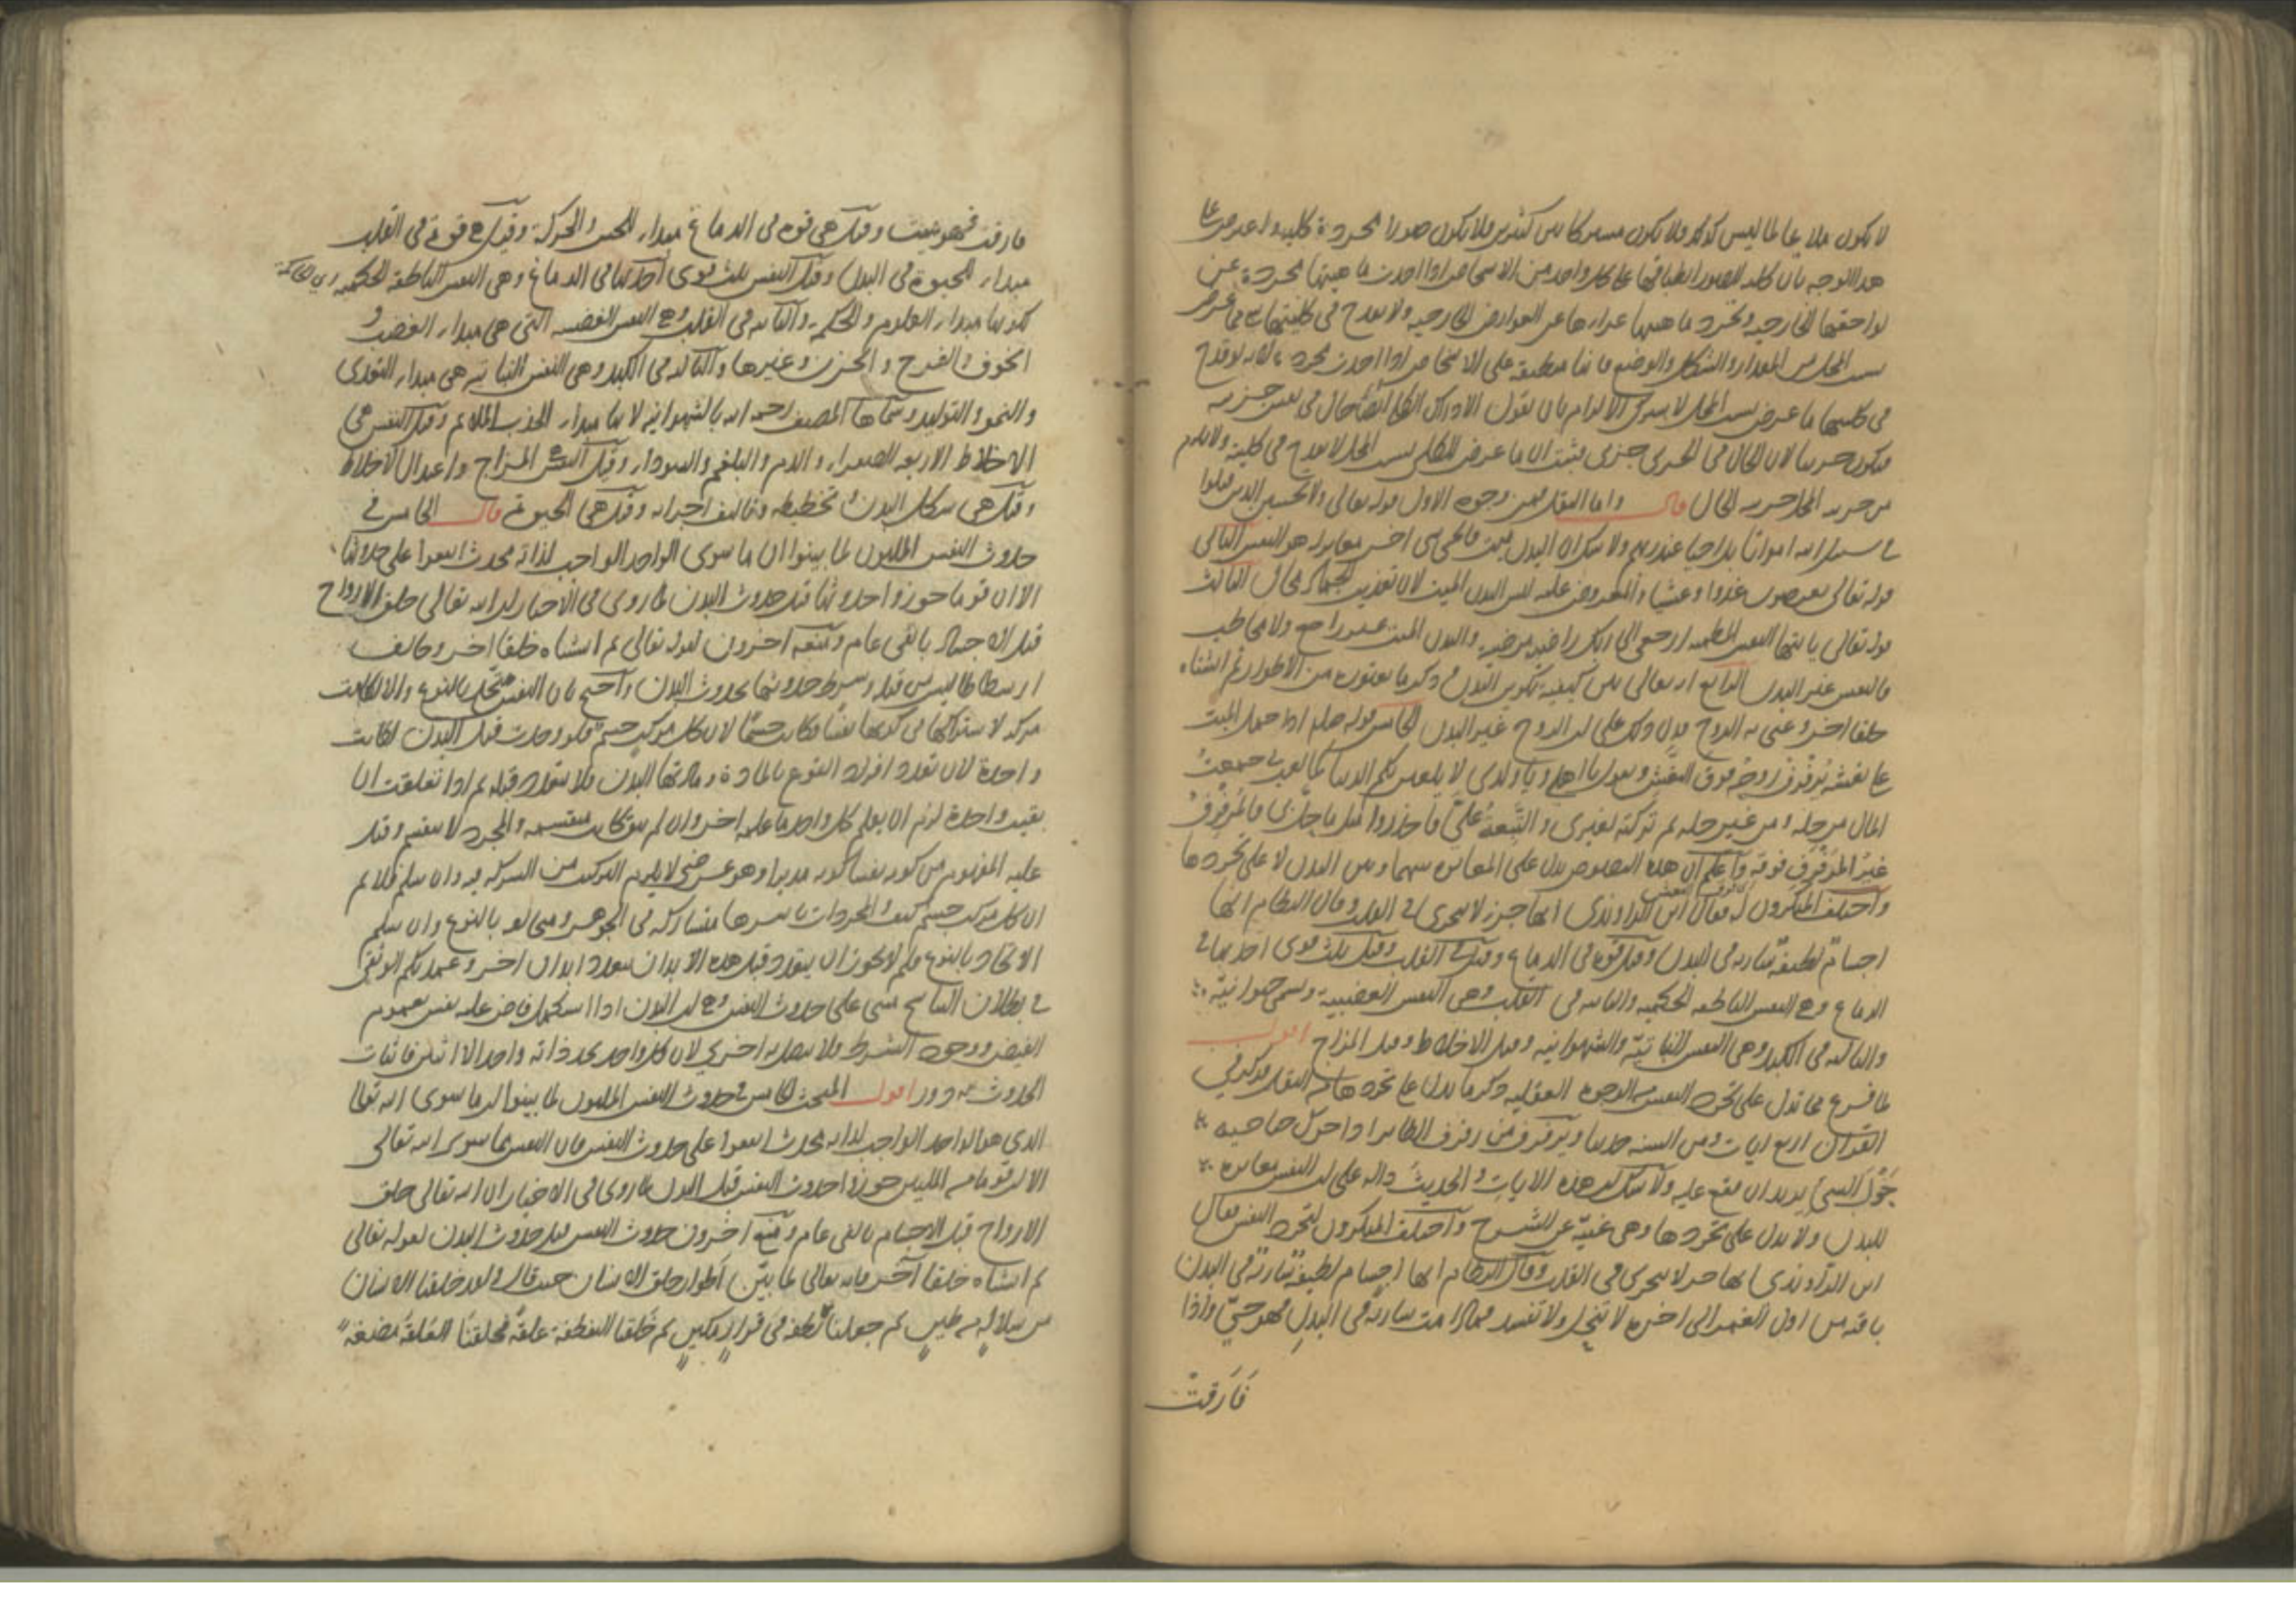 لا يكون ملايما لما ليس كذلك ولا يكون مشتركا بين كثيرين فلا يكون صورة مجردة كلية واعترض على
هذا الوجه بان كلية الصورة انطباقها على كل واحد من الاشخاص اذا اخذت ماهيتها مجردة عن
لواحقها الخارجية وتجرد ماهيتها عراؤها عن العوارض الخارجية ولا يقدح في كليتها ما عرض
بسبب المحل من المقدار والشكل والوضع فانها مطبقة على الاشخاص اذا اخذت مجردة لا يقدح
في كليتها ما عرض بسبب المحل لا يقول الادراك الكلي ايضا حال في نفس جزئية
فيكون جزئيا لان الحال في الجزئي جزئي فثبت ان ما عرض للكلي بسبب المحل لا يقدح في كليته ولا يلزم
من جزئية المحل جزئية الحال قال واما النقل فمن وجوه الاول قوله تعالى ولا تحسبن الذين قتلوا
في سبيل الله امواتا بل احياء عند ربهم ولا شك ان البدن ميت فالحي شي اخر مغاير له هو النفس الثاني
قوله تعالى يعرضون عليها غدوا وعشيا والمعروض عليه ليس البدن الميت لان تعذيب الجماد محال الثالث
قوله تعالى يا ايتها النفس المطمئنة ارجعي الى ربك راضية مرضية والبدن الميت غير راجع ولا مخاطب
فالنفس غير البدن الرابع انه تعالى بين كيفية تكوين البدن وذكر ما يعتوره من الاطوار ثم انشاه
خلقا اخر وعنى به الروح فدل ذلك على ان الروح غير البدن الخامس قوله صلم اذا حمل الميت
على نعشه يرفرف روحه فوق النعش ويقول يا اهلي ويا ولدي لا يلعبن بكم الدنيا كما لعبت بي جمعت
المال من حله ومن غير حله ثم تركته لغيري والتبعة علي فاحذروا مثل ما حل بي فالمرفرف
غير المرفرف فوقه واعلم ان هذه النصوص تدل على المغايرة بينها وبين البدن لا على تجردها
واختلف المنكرون له فقال ابن الراوندي انها جزء لا يتجزى في القلب وقال النظام انها
اجسام لطيفة سارية في البدن وقيل قوة في الدماغ وقيل في القلب وقيل ثلث قوى احديها في
الدماغ وهي النفس الناطقة الحكمية والثانية في القلب وهي النفس الغضبية وتسمى حيوانية
والثالثة في الكبد وهي النفس النباتية والشهوانية وقيل الاخلاط وقيل المزاج اقول
لما فرغ مما تدل على تجرد النفس من الوجوه العقلية ذكر ما يدل على تجردها من النقل فذكر في
القران اربع ايات ومن السنة حديثا ويرفرف من رفرف الطاير اذا حرك جناحيه
حول الشي يريد ان يقع عليه ولا شك ان هذه الايات والحديث دالة على ان النفس مغايرة
للبدن ولا يدل على تجردها وهي غنية عن الشرح واختلف المنكرون لتجرد النفس فقال
ابن الراوندي انها جزء لا يتجزى في القلب وقال النظام انها اجسام لطيفة سارية في البدن
باقية من اول العمر الى اخره لا تتحلل ولا تفسد فما دامت سارية في البدن فهو حي واذا
فارقت
فارقت فهو ميت وقيل هي قوة في الدماغ مبداء للحس والحركة وقيل هي قوة في القلب
مبداء للحيوة في البدن وقيل النفس ثلث قوى احديها في الدماغ وهي النفس الناطقة الحكمية
لكونها مبداء العلوم والحكمة والثانية في القلب وهي النفس الغضبية التي هي مبداء الغضب و
الخوف والفرح والحزن وغيرها والثالثة في الكبد وهي النفس النباتية هي مبداء التغذي
والنمو والتوليد وسماها المصنف رحمه الله بالشهوانية لانها مبداء الجذب الملايم وقيل النفس هي
الاخلاط الاربعة الصفراء والدم والبلغم والسوداء وقيل النفس المزاج واعتدال الاخلاط
وقيل هي شكل البدن وتخطيطه وتاليف اجزائه وقيل هي الحيوة قال الخامس في
حدوث النفس المليون لما بينوا ان ما سوى الواحد الواجب لذاته محدث اتفقوا على حدوثها
الا ان قوما جوزوا حدوثها قبل حدوث البدن لما روي في الاخبار ان الله تعالى خلق الارواح
قبل الاجساد بالفي عام ومنعه اخرون لقوله تعالى ثم انشاناه خلقا اخر وخالف
ارسطاطاليس من قبله وشرط حدوثها بحدوث البدن واحتج بان النفس متحدة بالنوع والا لكانت
مركبة لاشتراكها في كونها نفسا فكانت جسما لان كل مركب جسم فلو وجدت قبل البدن لكانت
واحدة لان تعدد افراد النوع بالمادة ومادتها البدن فلا يتعدد قبله ثم اذا تعلقت ان
بقيت واحدة لزم ان يعلم كل واحد ما علمه اخر وان لم تبق كانت منقسمة والمجرد لا ينقسم وقيل
عليه المفهوم من كونه نفسا كونه مدبرا وهو عرضي لا يلزم التركيب من الشركة فيه وان سلم فلا نم
ان كل مركب جسم كيف والمجردات باسرها متشاركة في الجوهر ومخالفة بالنوع وان سلم
الاتحاد بالنوع فلم لا يجوز ان يتعدد قبل هذه الابدان بتعدد ابدان اخر وعمدتكم الوثقى
في بطلان التناسخ مبني على حدوث النفس وهي ان البدن اذا استكمل فاض عليه نفس لعموم
الفيض ووجود الشرط ولا يتصل به اخرى لان كل واحد يجد ذاته واحدا لا اثنين فاثبات
الحدوث به دور اقول المبحث الخامس في حدوث النفس المليون لما بينوا ان ما سوى الله تعالى
الذي هو الواحد الواجب لذاته محدث اتفقوا على حدوث النفس فان النفس مما سوى الله تعالى
الا ان قوما من المليين جوزوا حدوث النفس قبل البدن لما روي في الاخبار ان الله تعالى خلق
الارواح قبل الاجسام بالفي عام ومنع اخرون حدوث النفس قبل حدوث البدن لقوله تعالى
ثم انشاناه خلقا آخر فانه تعالى لما بين اطوار خلق الانسان حيث قال ولقد خلقنا الانسان
من سلالة من طين ثم جعلناه نطفة في قرار مكين ثم خلقنا النطفة علقة فخلقنا العلقة مضغة